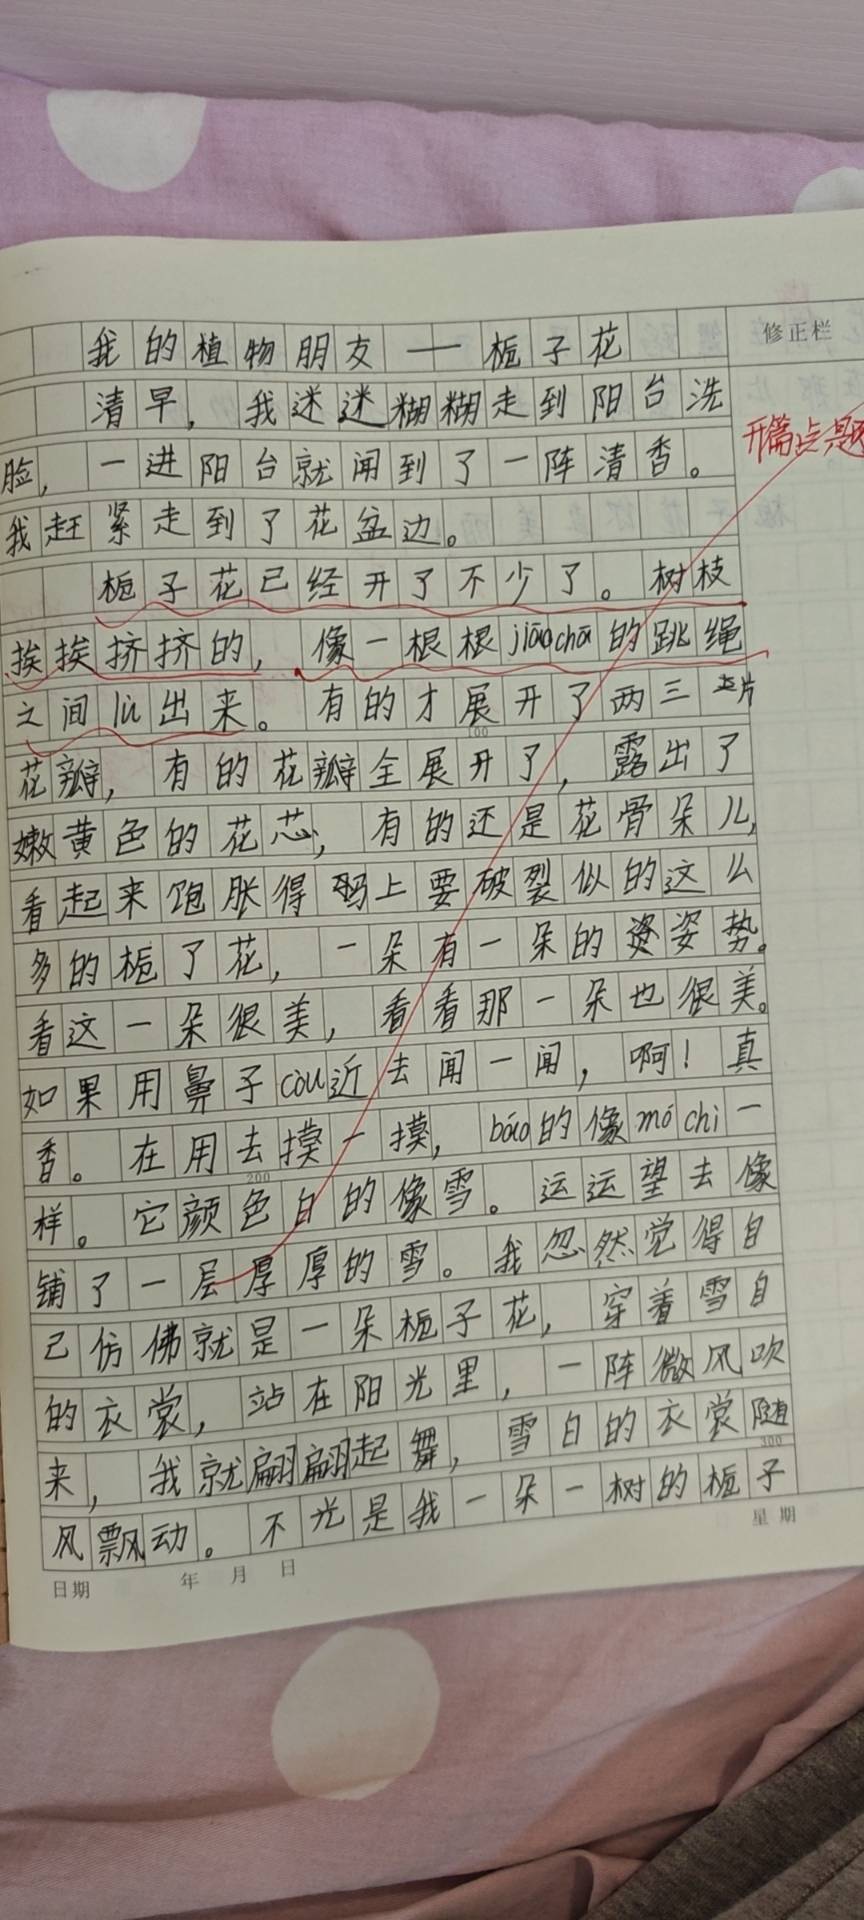 我的植物朋友——栀子花
修正栏
清早，我迷迷糊糊走到阳台洗
脸，一进阳台就闻到了一阵清香。
开篇点题
我赶紧走到了花盆边。
栀子花已经开了不少了。树枝
挨挨挤挤的，像一根根jiāochā的跳绳
之间lù出来。有的才展开了两三片
100
花瓣，有的花瓣全展开了，露出了
嫩黄色的花芯，有的还是花骨朵儿，
看起来饱胀得马上要破裂似的这么
多的栀了花，一朵有一朵的姿势。
看这一朵很美，看看那一朵也很美。
如果用鼻子còu近去闻一闻，啊！真
香。在用去摸一摸，báo的像mó chì一
200
样。它颜色白的像雪。运运望去像
铺了一层厚厚的雪。我忽然觉得自
己仿佛就是一朵栀子花，穿着雪自
的衣裳，站在阳光里，一阵微风吹
来，我就翩翩起舞，雪白的衣裳随
300
风飘动。不光是我一朵一树的栀子
日期 年 月 日 星期